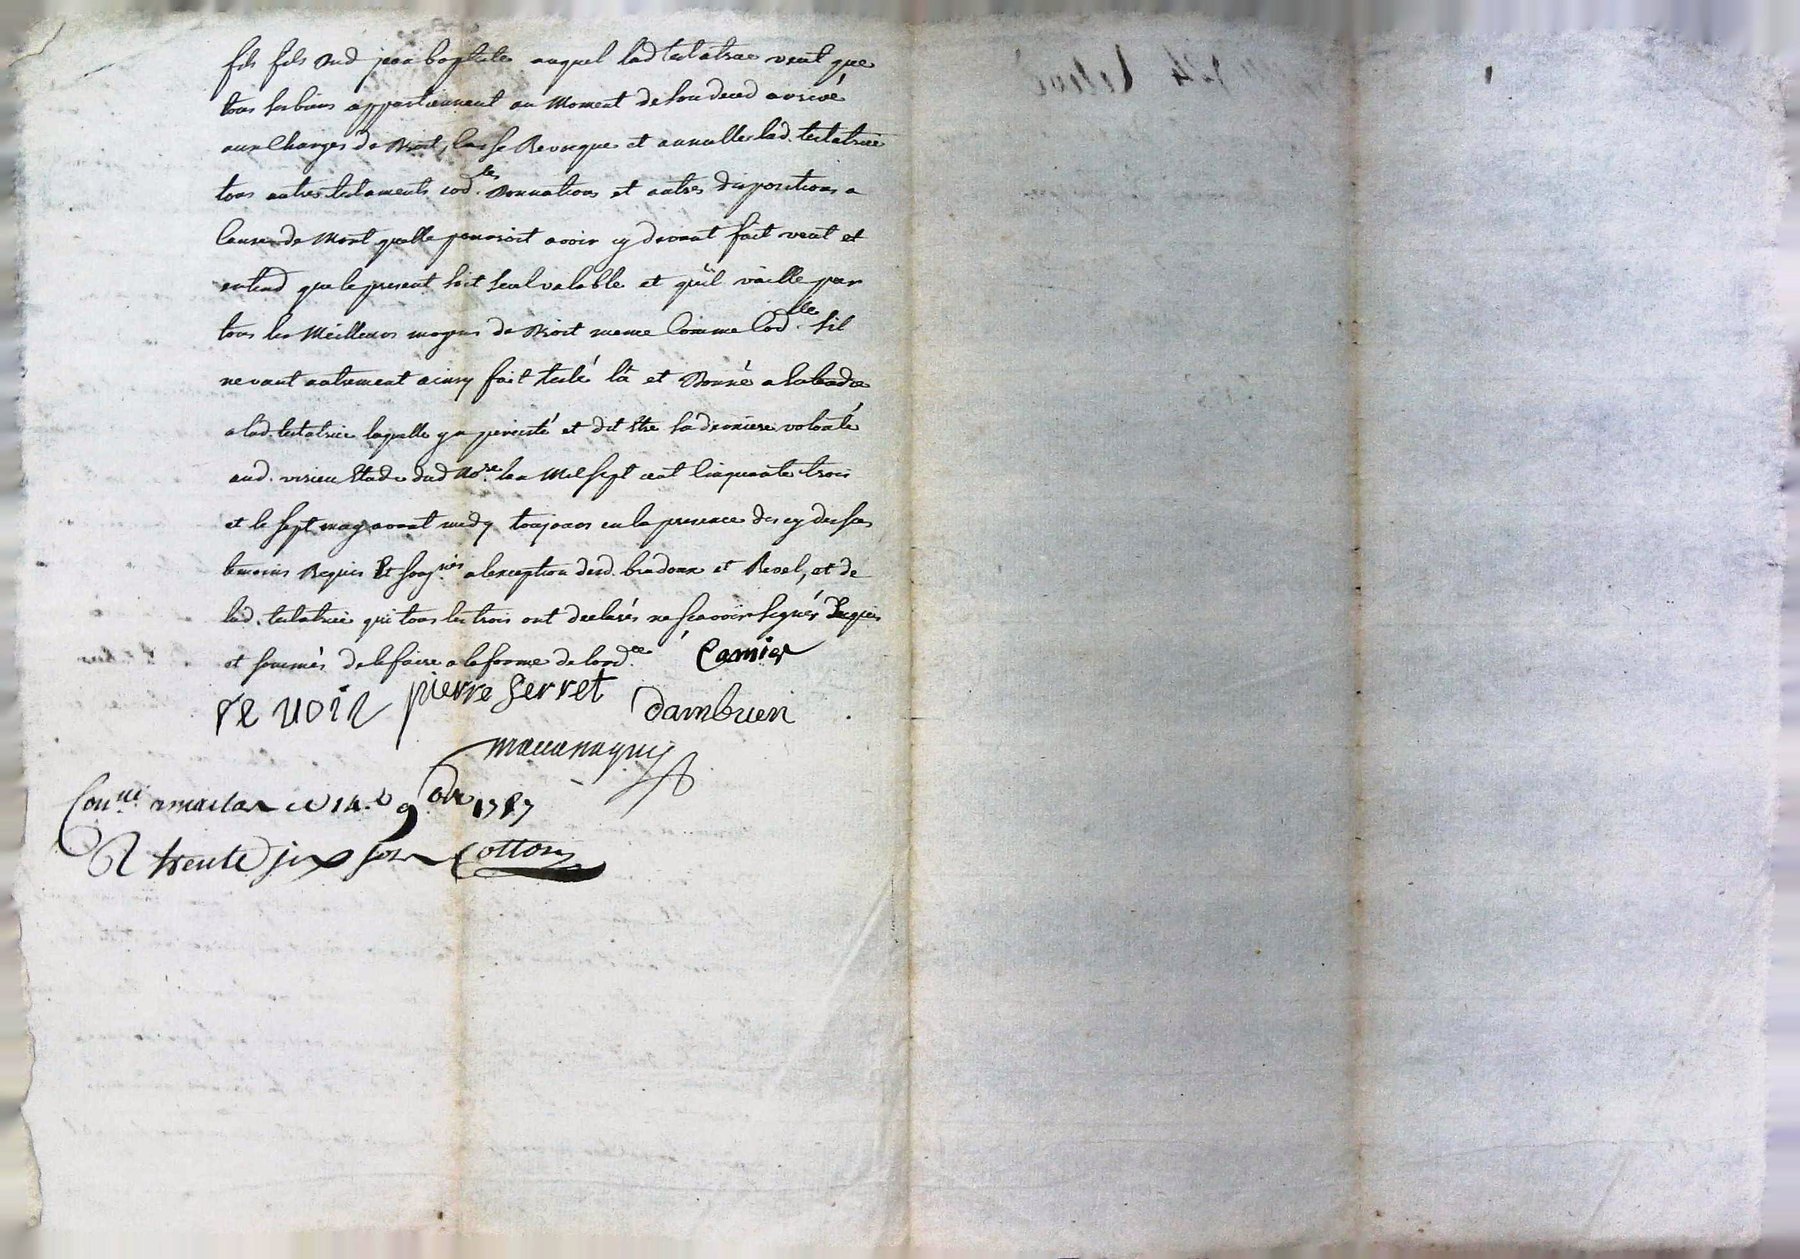 fils fils dud jean baptiste auquel lad testatrice veut que
tous ses biens appartiennent au Moment de son deced arrivé
aux Charges de Droit, Casse Revoque et annulle lad. testatrice
tous autres testaments cod.les Donnations et autres dispositions a
Cause de Mort quelle pourroit avoir cy devant fait veut et
entend que le present soit seul valable et quil vaille par
tous les Meilleurs moyens de Droit meme Comme Cod.lle sil
ne vaut autrement ainsy fait testé lû et Donné a
a lad. testatrice laquelle y a percisté et dit Etre sa derniere volonté
aud. Etude dud No.re lan Mil sept cent Cinquante trois
et le sept may avant midy toujours en la presence des cy dessus
temoins Requis Et soug.nés a lexception desd. et Revel, et de
lad. testatrice qui tous les trois ont declarés ne scavoir signér Enquis
et sommés de le faire a la forme de lord.ce Camier
revoir pierre serret dambuen
Con.llé a ce 14.e 9.bre 1787
R trente six sols Cotton